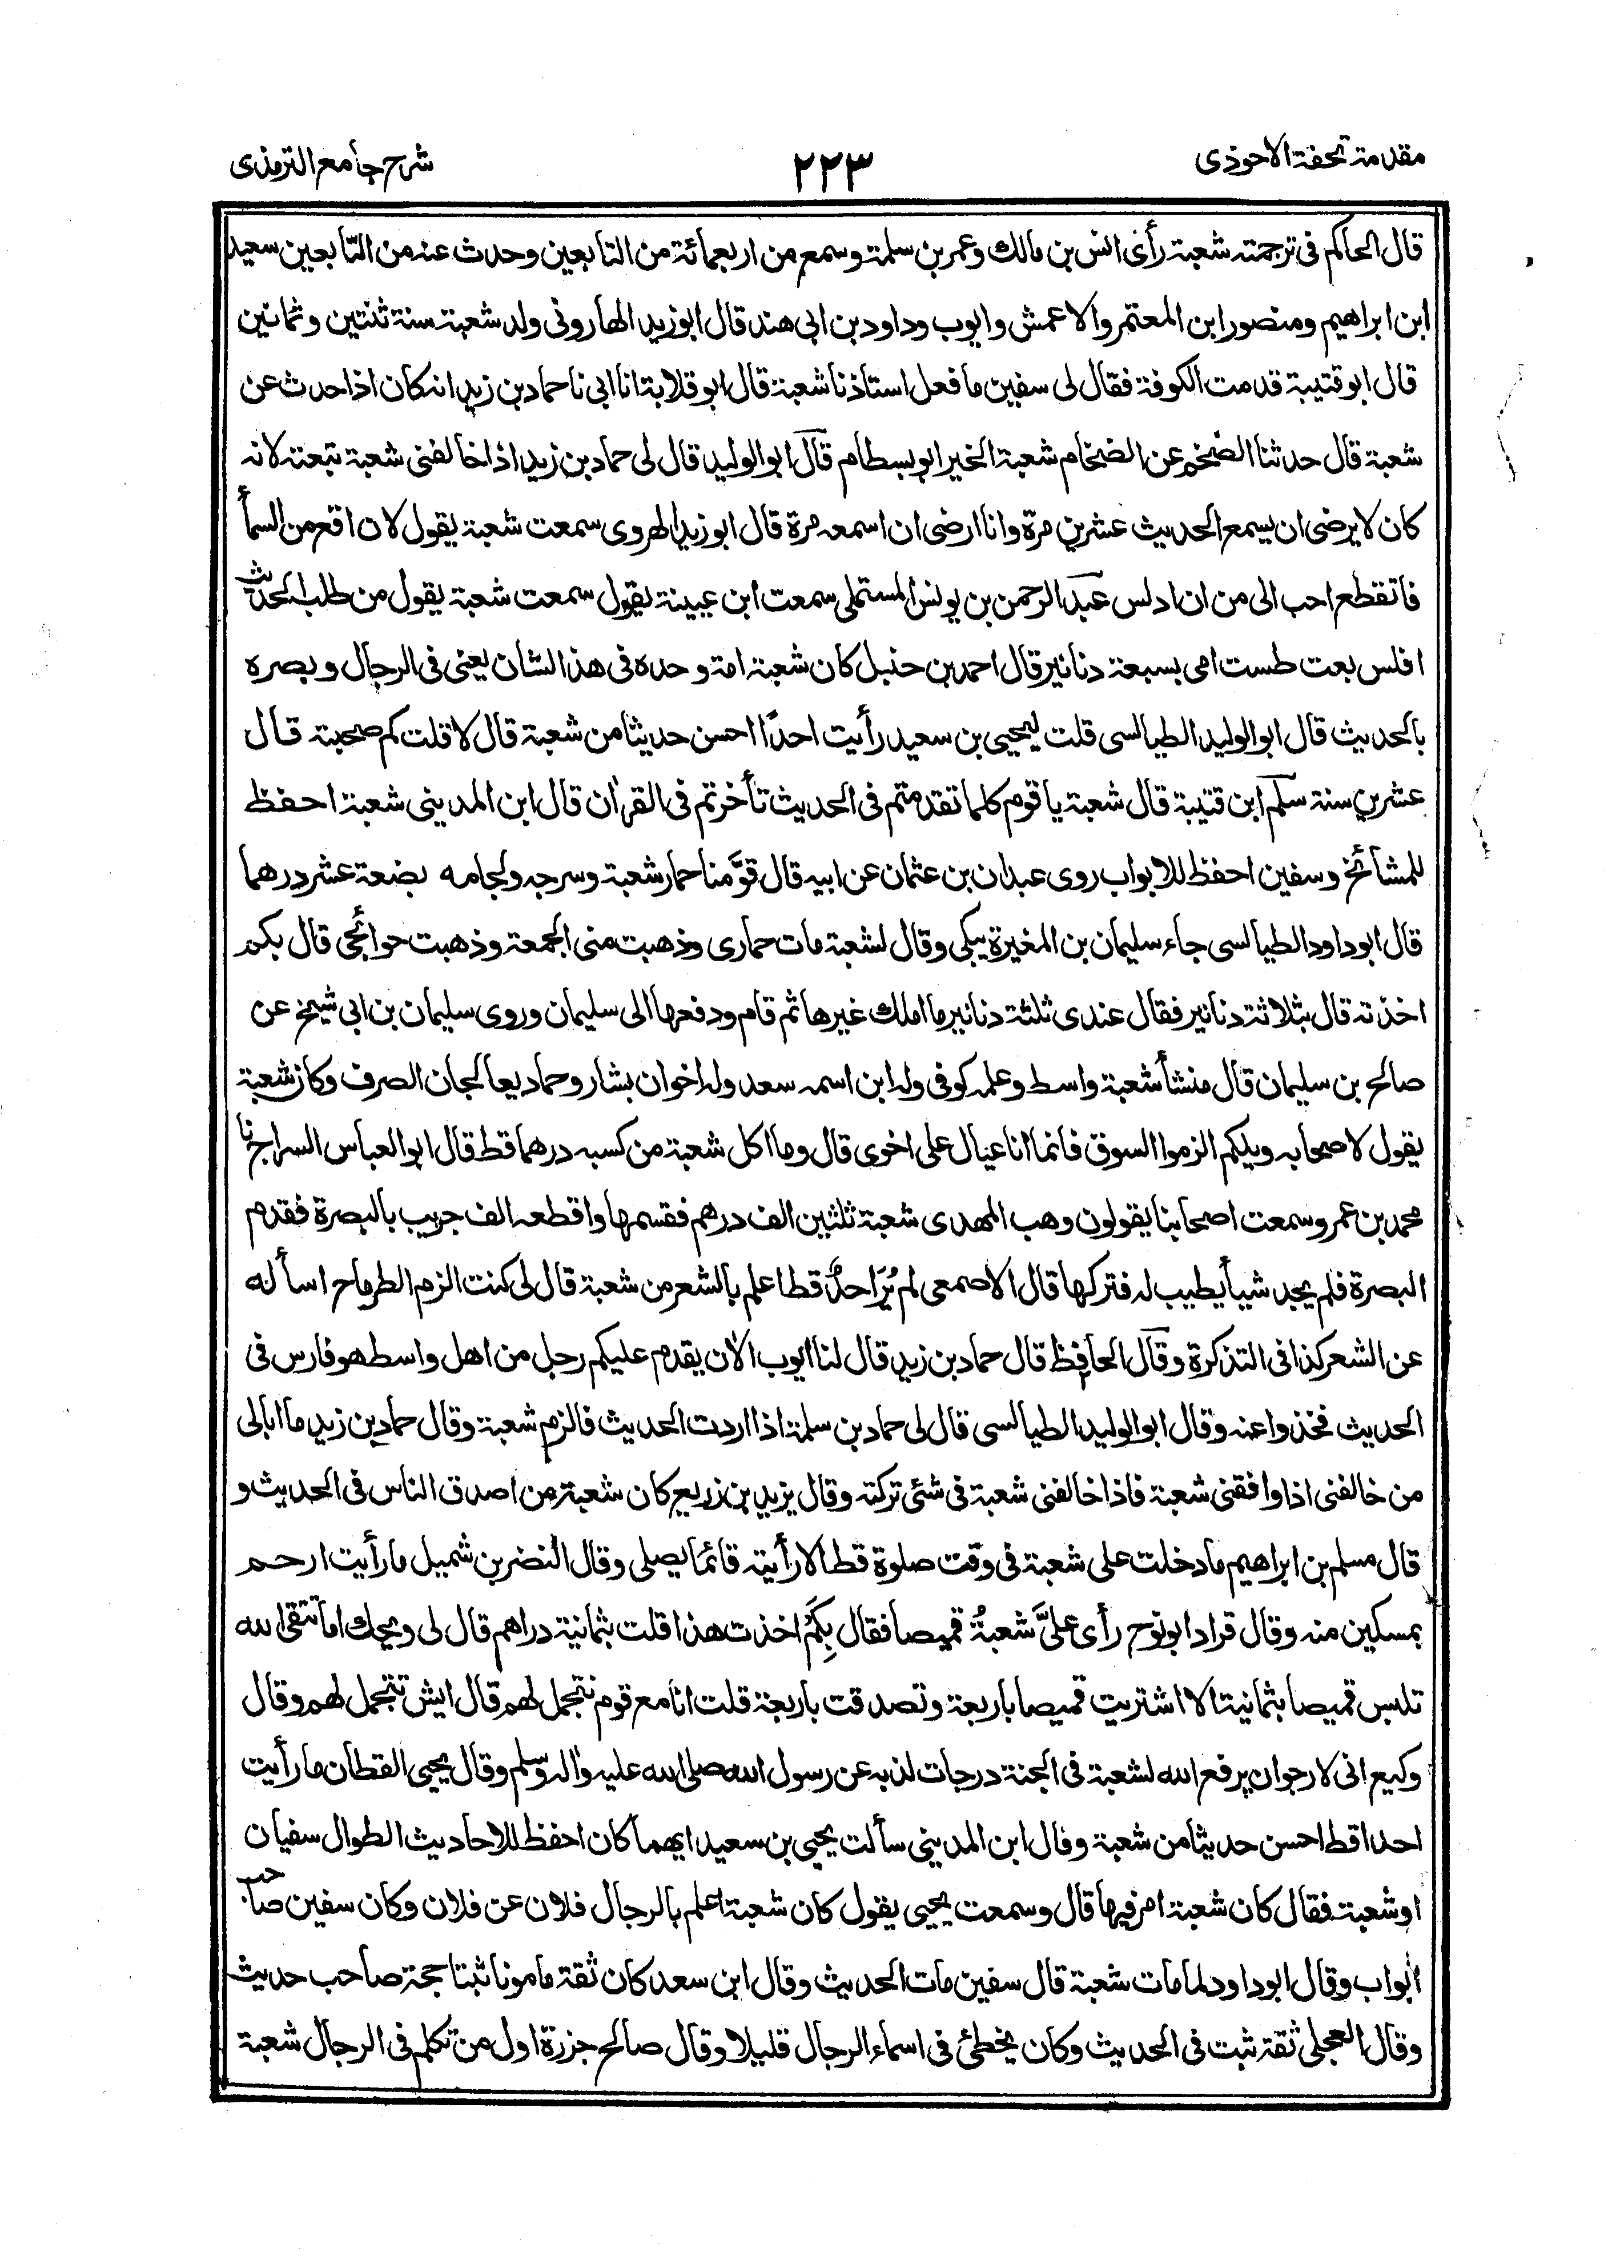 مقدمة تحفة الاحوذى
٢٢٣
شرح جامع الترمذى
قال الحاكم فى ترجمته شعبة رأى انس بن مالك وعمر بن سلمة وسمع من اربعمائة من التابعين وحدث عنه من التابعين سعيد
ابن ابراهيم ومنصور ابن المعتمر والاعمش وايوب وداود بن ابى هند قال ابو زيد الهارونى ولد شعبة سنة ثنتين وثمانين
قال ابو قتيبة قدمت الكوفة فقال لى سفين ما فعل استاذنا شعبة قال ابو قلابة انا ابى نا حماد بن زيد انه كان اذا حدث عن
شعبة قال حدثنا الضخم عن الضخام شعبة الخير ابو بسطام قال ابو الوليد قال لى حماد بن زيد اذا خالفنى شعبة تبعته لانه
كان لا يرضى ان يسمع الحديث عشرين مرة وانا ارضى ان اسمعه مرة قال ابو زيد الهروى سمعت شعبة يقول لان اقع من السمأ
فاتقطع احب الى من ان ادلس عبد الرحمن بن يونس المستملى سمعت ابن عيينة يقول سمعت شعبة يقول من طلب الحديث
افلس بعت طست امى بسبعة دنانير قال احمد بن حنبل كان شعبة امة وحده فى هذا الشان يعنى فى الرجال وبصره
بالحديث قال ابو الوليد الطيالسى قلت ليحيى بن سعيد رأيت احدًا احسن حديثا من شعبة قال لا قلت كم صحبته قال
عشرين سنة سلم ابن قتيبة قال شعبة يا قوم كلما تقدمتم فى الحديث تأخرتم فى القرآن قال ابن المدينى شعبة احفظ
للمشائخ وسفين احفظ للابواب روى عبدان بن عثمان عن ابيه قال قوَّمنا حمار شعبة وسرجه ولجامه بضعة عشر درهما
قال ابو داود الطيالسى جاء سليمان بن المغيرة يبكى وقال لشعبة مات حمارى وذهبت منى الجمعة وذهبت حوائجى قال بكم
اخذته قال بثلاثة دنانير فقال عندى ثلثة دنانير ما املك غيرها ثم قام ودفعها الى سليمان وروى سليمان بن ابى شيخ عن
صالح بن سليمان قال منشأ شعبة واسط وعلمه كوفى وله ابن اسمه سعد وله اخوان بشار وحماد يعالجان الصرف وكان شعبة
يقول لاصحابه ويلكم الزموا السوق فانما انا عيال على اخوى قال وما اكل شعبة من كسبه درهما قط قال ابو العباس السراج نا
محمد بن عمر وسمعت اصحابنا يقولون وهب المهدى شعبة ثلثين الف درهم فقسمها واقطعه الف جريب بالبصرة فقدم
البصرة فلم يجد شيأ يطيب له فتركها قال الاصمعى لم يُرَ احدٌ قط اعلم بالشعر من شعبة قال لى كنت الزم الطرماح اسأله
عن الشعر كذا فى التذكرة وقال الحافظ قال حماد بن زيد قال لنا ايوب الاٰن يقدم عليكم رجل من اهل واسط هو فارس فى
الحديث فخذوا عنه وقال ابو الوليد الطيالسى قال لى حماد بن سلمة اذا اردت الحديث فالزم شعبة وقال حماد بن زيد ما ابالى
من خالفنى اذا وافقنى شعبة فاذا خالفنى شعبة فى شئ تركته وقال يزيد بن زريع كان شعبة من اصدق الناس فى الحديث و
قال مسلم بن ابراهيم ما دخلت على شعبة فى وقت صلوة قط الا رأيته قائما يصلى وقال النضر بن شميل ما رأيت ارحم
بمسكين منه وقال قراد ابو نوح رأى علىَّ شعبةُ قميصا فقال بِكَمْ اخذت هذا قلت بثمانية دراهم قال لى ويحك اما تتقى الله
تلبس قميصا بثمانية الا اشتريت قميصا باربعة وتصدقت باربعة قلت انا مع قوم نتجمل لهم قال ايش تتجمل لهم وقال
وكيع انى لارجو ان يرفع الله لشعبة فى الجنة درجات لذبه عن رسول الله صلى الله عليه واٰله وسلم وقال يحيى القطان ما رأيت
احدا قط احسن حديثا من شعبة وقال ابن المدينى سألت يحيى بن سعيد ايهما كان احفظ للاحاديث الطوال سفيان
او شعبة فقال كان شعبة امر فيها قال وسمعت يحيى يقول كان شعبة اعلم بالرجال فلان عن فلان وكان سفين صاحب
ابواب وقال ابو داود لما مات شعبة قال سفين مات الحديث وقال ابن سعد كان ثقة مامونا ثبتا حجة صاحب حديث
وقال العجلى ثقة ثبت فى الحديث وكان يخطئ فى اسماء الرجال قليلا وقال صالح جزرة اول من تكلم فى الرجال شعبة